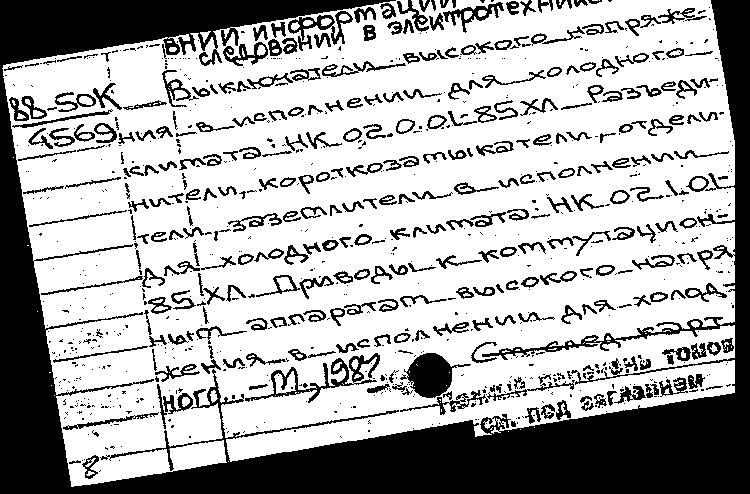 ВНИИ информации
следований в электротехнике
88-50К
4569
Выключатели высокого напряже-
ния в исполнении для холодного
климата: НК 02.0.01-85ХЛ. Разъеди-
нители, короткозамыкатели, отдели-
тели, заземлители в исполнении
для холодного климата: НК 02.1.01-
85 ХЛ. Приводы к коммутацион-
ным аппаратам высокого напря
жения в исполнении для холод-
ного... - М., 1987.
См. след. карт.
Полный перечень томов
см. под заглавием
8